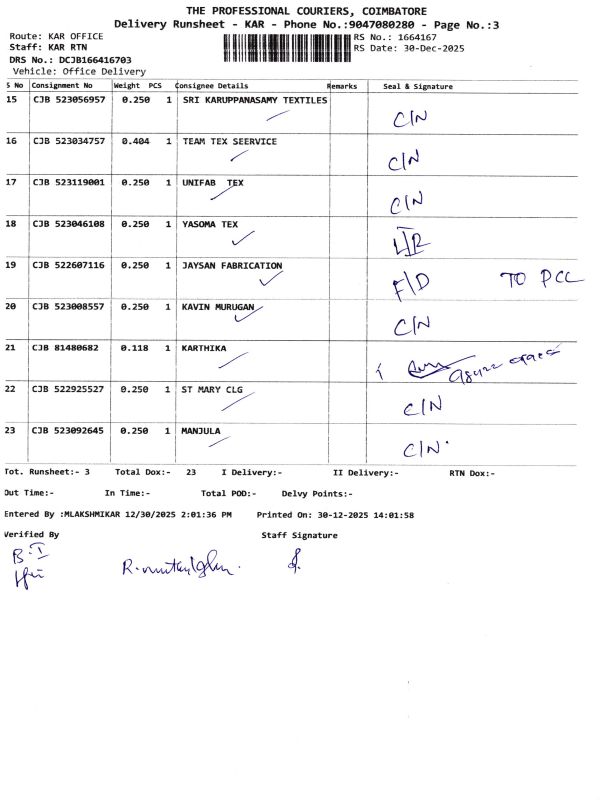 THE PROFESSIONAL COURIERS, COIMBATORE
Delivery Runsheet - KAR - Phone No.:9047080280 - Page No.:3
Route: KAR OFFICE RS No.: 1664167
Staff: KAR RTN RS Date: 30-Dec-2025
DRS No.: DCJB166416703
Vehicle: Office Delivery
S No Consignment No Weight PCS Consignee Details Remarks Seal & Signature
15 CJB 523056957 0.250 1 SRI KARUPPANASAMY TEXTILES C/N
16 CJB 523034757 0.404 1 TEAM TEX SEERVICE C/N
17 CJB 523119001 0.250 1 UNIFAB TEX C/N
18 CJB 523046108 0.250 1 YASOMA TEX
19 CJB 522607116 0.250 1 JAYSAN FABRICATION F/D TO PCC
20 CJB 523008557 0.250 1 KAVIN MURUGAN C/N
21 CJB 81480682 0.118 1 KARTHIKA
22 CJB 522925527 0.250 1 ST MARY CLG C/N
23 CJB 523092645 0.250 1 MANJULA C/N
Tot. Runsheet:- 3 Total Dox:- 23 I Delivery:- II Delivery:- RTN Dox:-
Out Time:- In Time:- Total POD:- Delvy Points:-
Entered By :MLAKSHMIKAR 12/30/2025 2:01:36 PM Printed On: 30-12-2025 14:01:58
Verified By Staff Signature